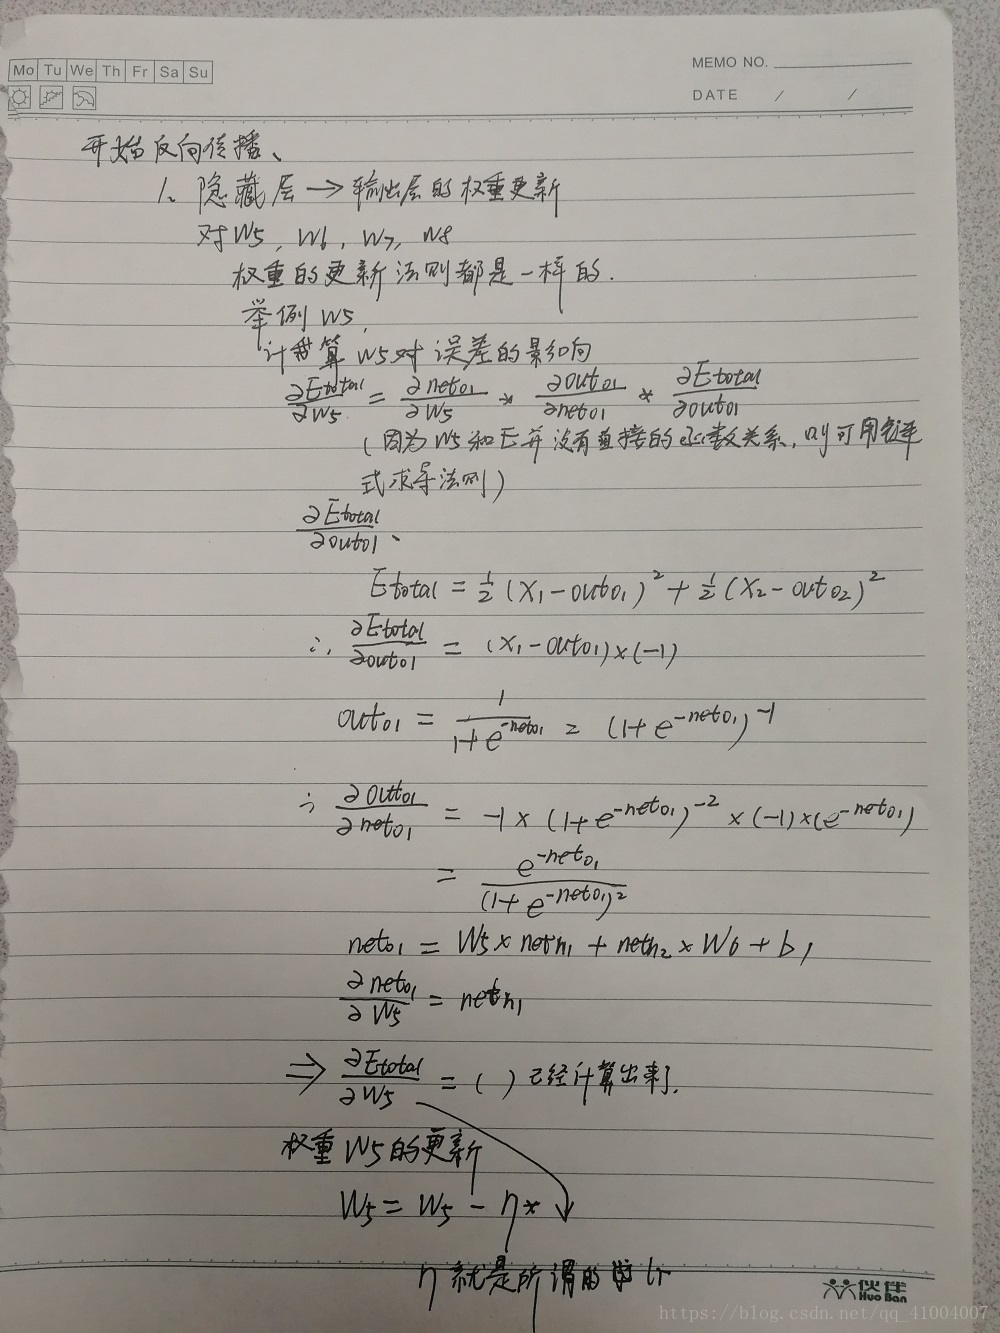 Mo Tu We Th Fr Sa Su
MEMO NO.
DATE / /
开始反向传播、
1、隐藏层 → 输出层的权重更新
对W5, W6, W7, W8
权重的更新法则都是一样的.
举例 W5,
计算 W5对误差的影响
∂Etotal/∂W5 = ∂neto1/∂W5 * ∂outo1/∂neto1 * ∂Etotal/∂outo1
(因为W5和E并没有直接的函数关系, 则可用链
式求导法则)
∂Etotal/∂outo1、
Etotal = 1/2 (X1-outo1)² + 1/2 (X2-outo2)²
∴ ∂Etotal/∂outo1 = (X1-outo1)×(-1)
outo1 = 1/(1+e^-neto1) = (1+e^-neto1)^-1
∴ ∂outo1/∂neto1 = -1×(1+e^-neto1)^-2×(-1)×(e^-neto1)
= e^-neto1/(1+e^-neto1)²
neto1 = W5×neth1+neth2×W6+b1
∂neto1/∂W5 = neth1
⇒ ∂Etotal/∂W5 = ( ) 已经计算出来了.
权重W5的更新
W5 = W5 - η*
η 就是所谓的 lr
伙伴
Huo Ban
https://blog.csdn.net/qq_41004007